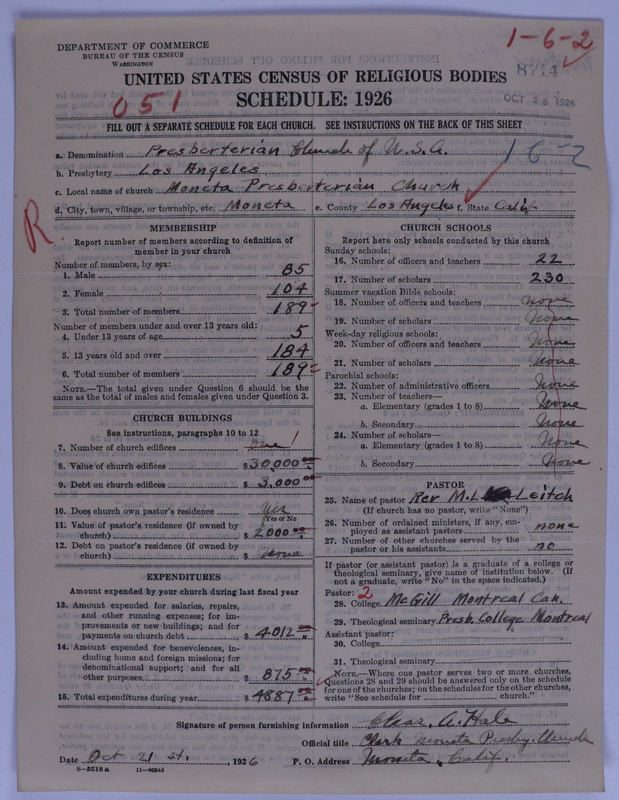 DEPARTMENT OF COMMERCE
BUREAU OF THE CENSUS
WASHINGTON
1-6-2
8714
OCT 28 1926
UNITED STATES CENSUS OF RELIGIOUS BODIES
SCHEDULE: 1926
051
FILL OUT A SEPARATE SCHEDULE FOR EACH CHURCH. SEE INSTRUCTIONS ON THE BACK OF THIS SHEET
a. Denomination Presberterian Church of U.S.A.
16-2
b. Presbytery Los Angeles
c. Local name of church Moneta Presberterian Church
d. City, town, village, or township, etc. Moneta e. County Los Angeles f. State Calif.
R.
MEMBERSHIP
Report number of members according to definition of
member in your church
Number of members, by sex:
1. Male 85
2. Female 104
3. Total number of members 189
Number of members under and over 13 years old:
4. Under 13 years of age 5
5. 13 years old and over 184
6. Total number of members 189
NOTE.—The total given under Question 6 should be
the same as the total of males and females given under Question 3.
CHURCH BUILDINGS
See instructions, paragraphs 10 to 12
7. Number of church edifices One 1
8. Value of church edifices $30,000 00
9. Debt on church edifices $3,000 00
10. Does church own pastor's residence Yes
Yes or No
11. Value of pastor's residence (if owned by
church) $2000 00
12. Debt on pastor's residence (if owned by
church) $ none
EXPENDITURES
Amount expended by your church during last fiscal year
13. Amount expended for salaries, repairs,
and other running expenses; for im-
provements or new buildings; and for
payments on church debt $4012 00
14. Amount expended for benevolences, in-
cluding home and foreign missions; for
denominational support; and for all
other purposes $875 00
15. Total expenditures during year $4887 00
CHURCH SCHOOLS
Report here only schools conducted by this church
Sunday schools:
16. Number of officers and teachers 22
17. Number of scholars 230
Summer vacation Bible schools:
18. Number of officers and teachers none
19. Number of scholars None
Week-day religious schools:
20. Number of officers and teachers None
21. Number of scholars None
Parochial schools:
22. Number of administrative officers None
23. Number of teachers—
a. Elementary (grades 1 to 8) None
b. Secondary None
24. Number of scholars—
a. Elementary (grades 1 to 8) None
b. Secondary None
PASTOR
25. Name of pastor Rev M.L. Leitch
(If church has no pastor, write "None")
26. Number of ordained ministers, if any, em-
ployed as assistant pastors none
27. Number of other churches served by the
pastor or his assistants no
If pastor (or assistant pastor) is a graduate of a college or
theological seminary, give name of institution below. (If
not a graduate, write "No" in the space indicated.)
Pastor: 2
28. College McGill Montreal Can.
29. Theological seminary Presb. College Montreal
Assistant pastor:
30. College
31. Theological seminary
NOTE.—Where one pastor serves two or more churches,
Questions 28 and 29 should be answered only on the schedule
for one of the churches; on the schedules for the other churches,
write "See schedule for church."
Signature of person furnishing information Chas. A. Hale
Official title Clerk Moneta Presby. Church
Date Oct 21 st., 1926 P. O. Address Moneta, Calif.
8-5518a 11-9054d